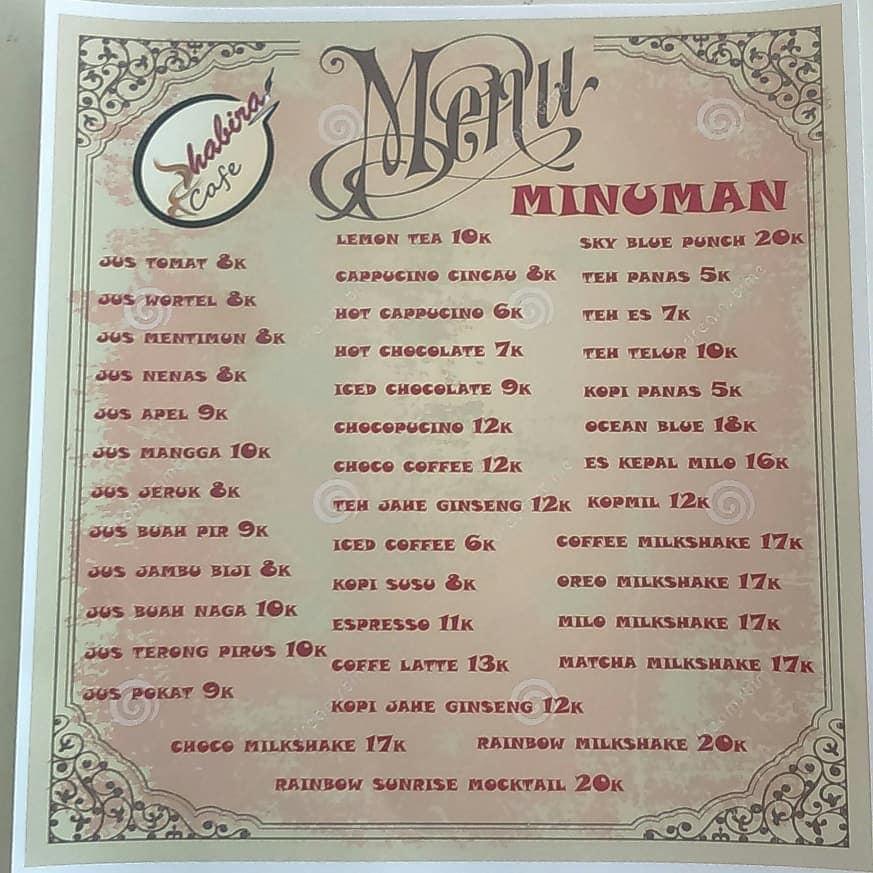 Menu
Khabira
Cafe
MINUMAN
JUS TOMAT 8K
JUS WORTEL 8K
JUS MENTIMUN 8K
JUS NENAS 8K
JUS APEL 9K
JUS MANGGA 10K
JUS JERUK 8K
JUS BUAH PIR 9K
JUS JAMBU BIJI 8K
JUS BUAH NAGA 10K
JUS TERONG PIRUS 10K
JUS POKAT 9K
LEMON TEA 10K
CAPPUCINO CINCAU 8K
HOT CAPPUCINO 6K
HOT CHOCOLATE 7K
ICED CHOCOLATE 9K
CHOCOPUCINO 12K
CHOCO COFFEE 12K
TEH JAHE GINSENG 12K
ICED COFFEE 6K
KOPI SUSU 8K
ESPRESSO 11K
COFFE LATTE 13K
KOPI JAHE GINSENG 12K
SKY BLUE PUNCH 20K
TEH PANAS 5K
TEH ES 7K
TEH TELUR 10K
KOPI PANAS 5K
OCEAN BLUE 18K
ES KEPAL MILO 16K
KOPMIL 12K
COFFEE MILKSHAKE 17K
OREO MILKSHAKE 17K
MILO MILKSHAKE 17K
MATCHA MILKSHAKE 17K
CHOCO MILKSHAKE 17K
RAINBOW MILKSHAKE 20K
RAINBOW SUNRISE MOCKTAIL 20K